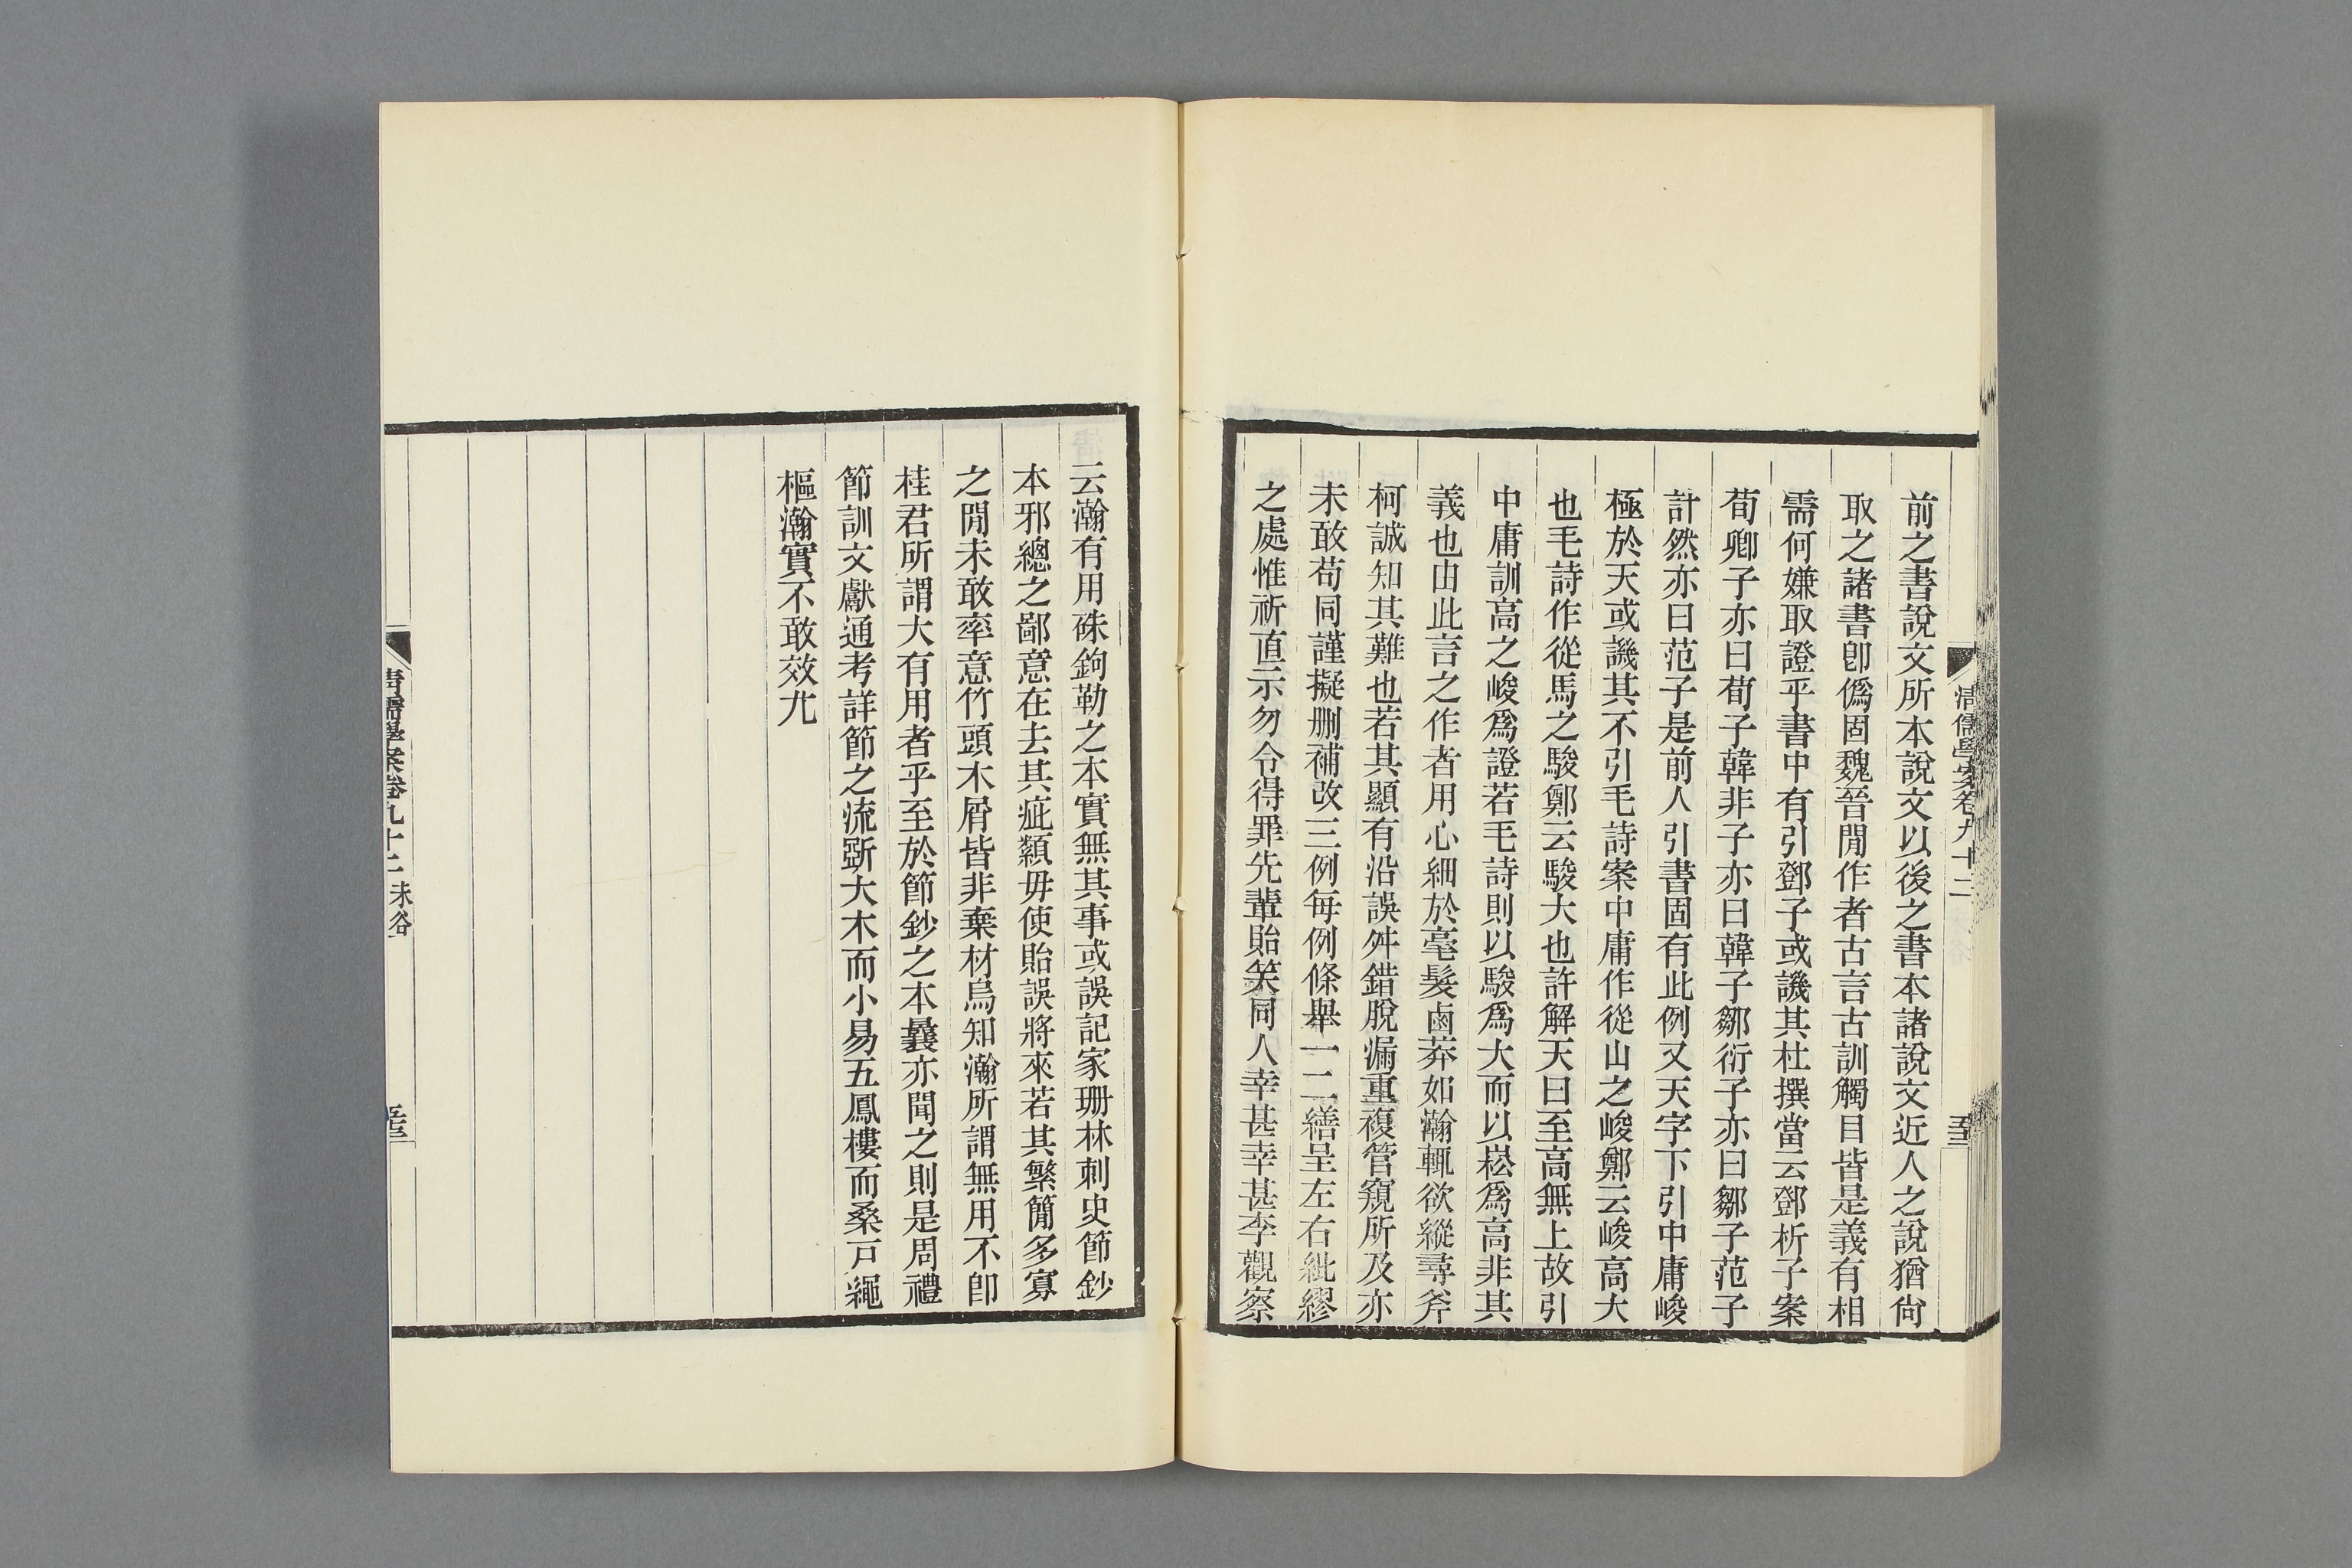 清儒學案卷九十二
前之書說文所本說文以後之書本諸說文近人之說猶尙
取之諸書卽僞固魏晉閒作者古言古訓觸目皆是義有相
需何嫌取證乎書中有引鄧子或譏其杜撰當云鄧析子案
荀卿子亦曰荀子韓非子亦曰韓子鄒衍子亦曰鄒子范子
計然亦曰范子是前人引書固有此例又天字下引中庸峻
極於天或譏其不引毛詩案中庸作從山之峻鄭云峻高大
也毛詩作從馬之駿鄭云駿大也許解天曰至高無上故引
中庸訓高之峻爲證若毛詩則以駿爲大而以崧爲高非其
義也由此言之作者用心細於毫髮鹵莽如瀚輒欲縱尋斧
柯誠知其難也若其顯有沿誤舛錯脫漏重複管窺所及亦
未敢苟同謹擬刪補改三例每例條舉一二繕呈左右紕繆
之處惟祈直示勿令得罪先輩貽笑同人幸甚幸甚李觀察
云瀚有用硃鉤勒之本實無其事或誤記家珊林刺史節鈔
本邪總之鄙意在去其疵纇毋使貽誤將來若其繁簡多寡
之閒未敢率意竹頭木屑皆非棄材烏知瀚所謂無用不卽
桂君所謂大有用者乎至於節鈔之本曩亦聞之則是周禮
節訓文獻通考詳節之流斲大木而小易五鳳樓而桑戸繩
樞瀚實不敢效尤
清儒學案卷九十二 未谷